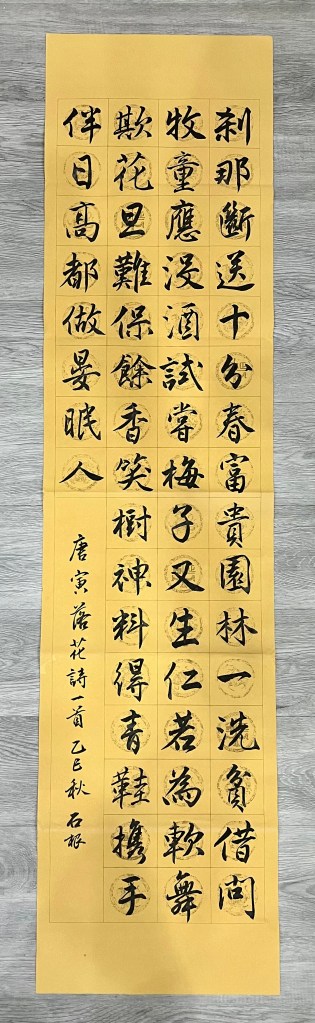 刹那斷送十分春富貴園林一洗貧借問
牧童應沒酒試嘗梅子又生仁若為軟舞
欺花旦難保餘香笑樹神料得青鞋携手
伴日高都做晏眠人
唐寅落花詩一首 乙巳秋 石